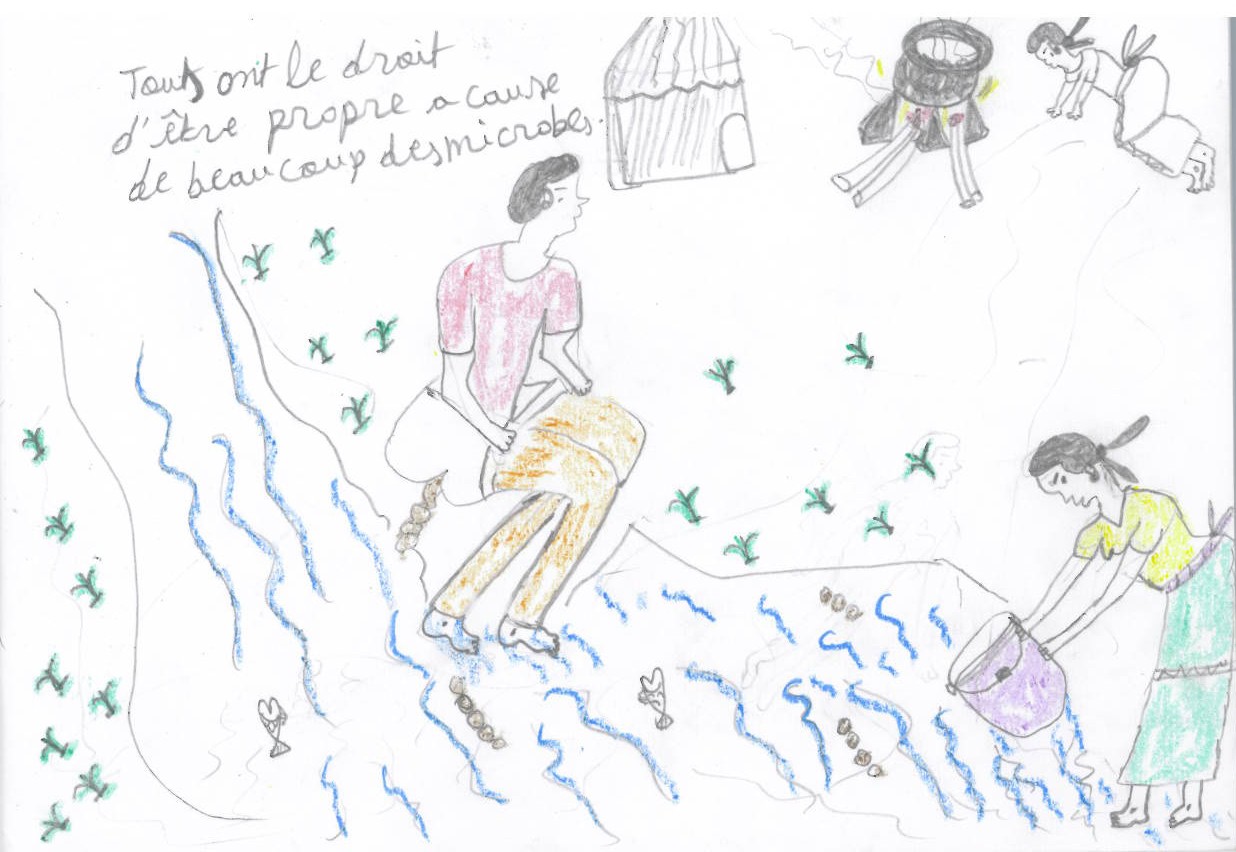 Touts ont le droit
d'être propre a cause
de beaucoup desmicrobes.